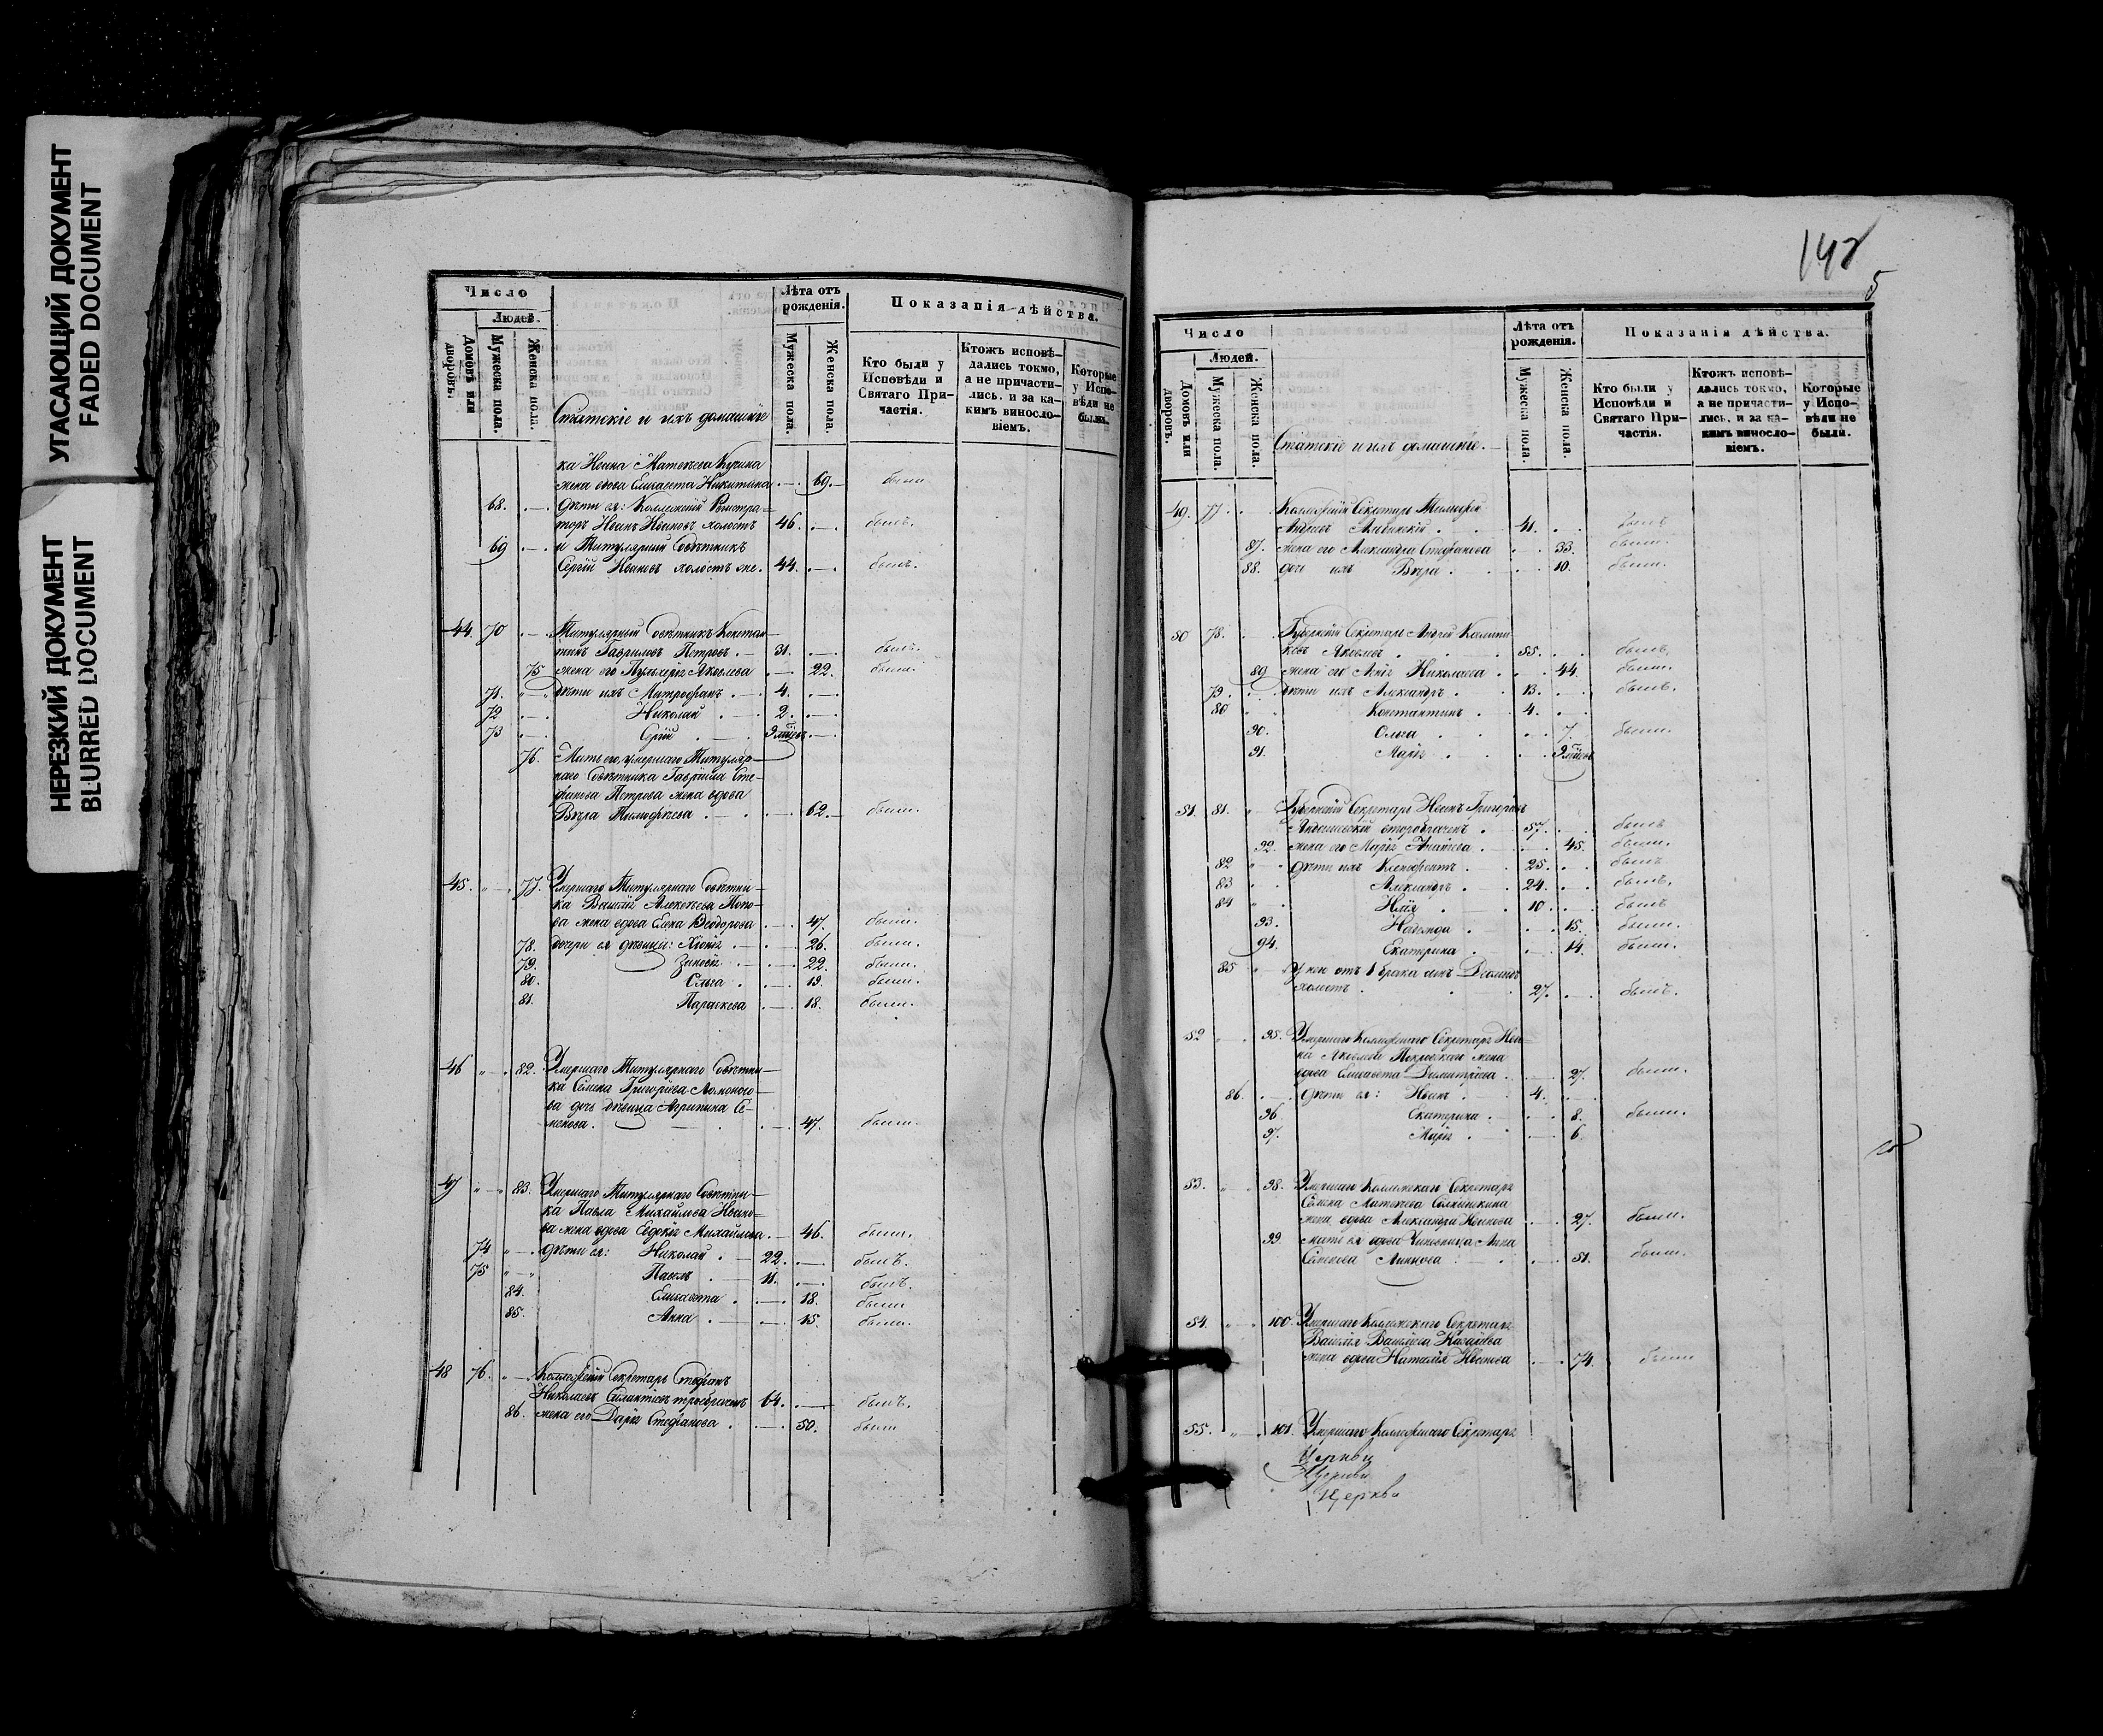 УГАСАЮЩИЙ ДОКУМЕНТ
FADED DOCUMENT
НЕРЕЗКИЙ ДОКУМЕНТ
BLURRED DOCUMENT
Число
Людей.
Домовъ или дворовъ.
Мужеска пола.
Женска пола.
Статскіе и ихъ домашніе
Лѣта отъ рожденія.
Мужеска пола.
Женска пола.
Показанія дѣйства.
Кто были у Исповѣди и Святаго Причастія.
Ктожъ исповѣдались токмо, а не причастились. и за какимъ винословіемъ.
Которые у Исповѣди не были.
ка Ивана Матвѣева
жена вдова Елисавета Никитина 69. была
68. дѣти ея: Коллежскій Регистра=
торъ Иванъ Ивановъ холостъ 46. былъ.
69 и Титулярный Совѣтникъ
Сергій Ивановъ холостъ же. 44. былъ.
44. 70 Титулярный Совѣтникъ Констан-
тинъ Гавриловъ Петровъ. 31. былъ.
75 жена его Пульхерія Яковлева 22. была.
71. дѣти ихъ Митрофанъ 4.
72 Николай 2.
73 Сергій
76. Мать его, умершаго Титуляр-
наго Совѣтника Гавріила Сте-
фанова Петрова жена вдова
Вѣра Тимофеева 62. была.
45. 77. Умершаго Титулярнаго Совѣтни-
ка Василія Алексѣева Попо-
ва жена вдова Елена Ѳеодорова 47. была.
78. дочери ея дѣвицы: Хіонія 26. была.
79. Зиновія 22. была.
80. Ольга 19. была.
81. Параскева 18. была.
46 82. Умершаго Титулярнаго Совѣтни-
ка Семена Григорьева Ломоносо-
ва дочь дѣвица Агрипина Се-
менова. 47. была.
47 83. Умершаго Титулярнаго Совѣтни-
ка Павла Михайлова Ивано-
ва жена вдова Евдокія Михайлова 46. была.
74 дѣти ея: Николай 22. былъ.
75 Павелъ 11. былъ.
84. Елисавета 18. была
85. Анна 15. была.
48 76. Коллежскій Секретарь Стефанъ
Николаевъ Силантіевъ 64. былъ.
86. жена его Дарія Стефанова 50. была
142
5
Число
Людей.
Домовъ или дворовъ.
Мужеска пола.
Женска пола.
Статскіе и ихъ домашніе.
Лѣта отъ рожденія.
Мужеска пола.
Женска пола.
Показанія дѣйства.
Кто были у Исповѣди и Святаго Причастія.
Ктожъ исповѣдались токмо, а не причастились, и за какимъ винословіемъ.
Которые у Исповѣди не были.
49. 77. Коллежскій Секретарь Тимофей
Андреевъ 41. былъ
87. жена его Александра Стефанова 33. была.
88. дочь ихъ Вѣра 10. была.
50 78. Губернскій Секретарь Андрей
Яковлевъ 55. былъ.
89 жена его Николаева 44. была.
79. дѣти ихъ Александръ 13. былъ.
80 Константинъ 4.
90. Ольга 7. была.
91. Марія
51. 81. Губернскій Секретарь Иванъ Григорьевъ
второбрачен. 57. былъ
92. жена его Марія Игнатіева 45. была.
82 дѣти ихъ Ксенофонтъ 25. былъ
83 Александръ 24. былъ.
84 Илія 10 былъ
93. Надежда 15. была.
94. Екатерина 14. была.
85 У него отъ 1 брака сынъ
холостъ 27. былъ.
52 95. Умершаго Коллежскаго Секретаря Ива-
на Яковлева Покровскаго жена
вдова Елисавета Димитріева 27. была.
86. дѣти ея: Иванъ 4.
96. Екатерина 8. была.
97. Марія 6.
53. 98. Умершаго Коллежскаго Секретаря
Семена Матвѣева
жена вдова Александра Иванова 27. была.
99. мать ея вдова Чиновница Анна
Семенова 51. была.
54. 100. Умершаго Коллежскаго Секретаря
Василія Васильева
жена вдова Наталія Иванова 74. была
55. 101. Умершаго Коллежскаго Секретаря
Церкви
Церкви
Церкви